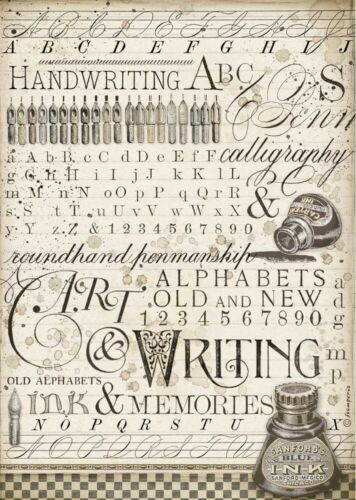 A B C D E F G H I
A B C D E F G H I J
HANDWRITING ABC
S
Penn
a A b B c C d D e E f F
calligraphy
g G h H i I j J k K l L
m M n N o O p P q Q r R
s S t T u U v V w W x X
y Y z Z & 1 2 3 4 5 6 7 8 9 0
&
CARTER
INK
roundhand penmanship
ALPHABETS
OLD AND NEW
1 2 3 4 5 6 7 8 9 0
ART
& WRITING
a
d
g
m
p
OLD ALPHABETS
ink & MEMORIES
N O P Q R S T U
Stamperia
SANFORD'S
BLUE
INK
SANFORD MFG CO
CHICAGO